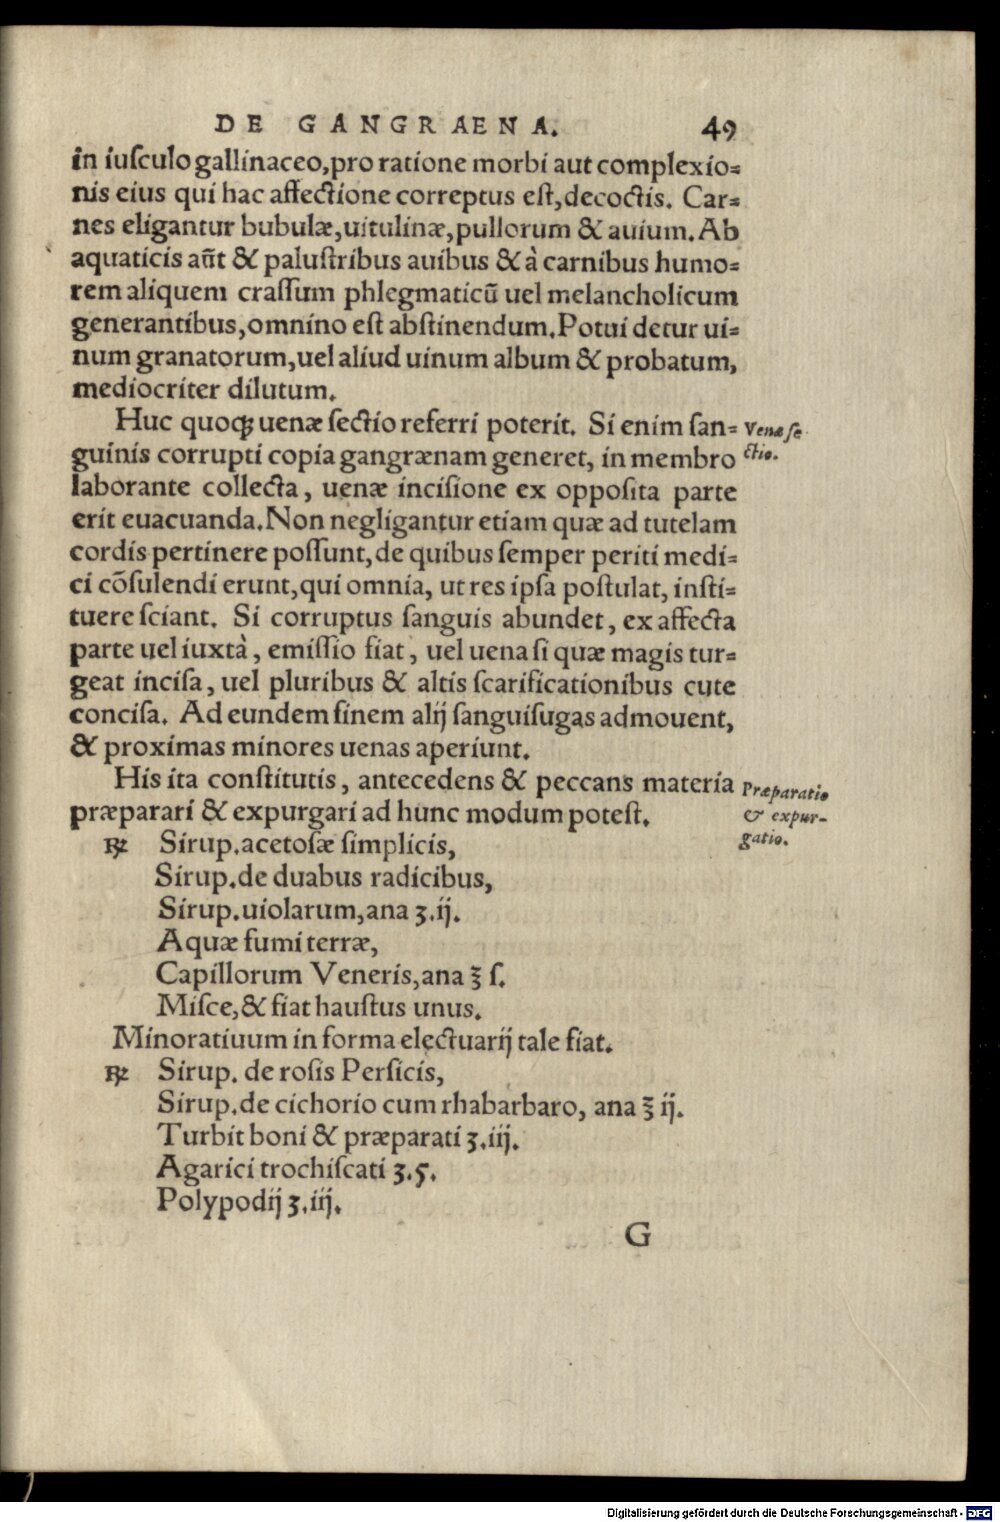 DE GANGRAENA. 49
in iuſculo gallinaceo, pro ratione morbi aut complexio=
nis eius qui hac affectione correptus eſt, decoctis. Car=
nes eligantur bubulæ, uitulinæ, pullorum & auium. Ab
aquaticis aūt & paluſtribus auibus & à carnibus humo=
rem aliquem craſſum phlegmaticū uel melancholicum
generantibus, omnino eſt abſtinendum. Potui detur ui=
num granatorum, uel aliud uinum album & probatum,
mediocriter dilutum.
Huc quoqꝫ uenæ ſectio referri poterit. Si enim ſan=
Venæ ſe
guinis corrupti copia gangrænam generet, in membro
ctio.
laborante collecta, uenæ inciſione ex oppoſita parte
erit euacuanda. Non negligantur etiam quæ ad tutelam
cordis pertinere poſſunt, de quibus ſemper periti medi=
ci cōſulendi erunt, qui omnia, ut res ipſa poſtulat, inſti=
tuere ſciant. Si corruptus ſanguis abundet, ex affecta
parte uel iuxtà, emiſſio fiat, uel uena ſi quæ magis tur=
geat inciſa, uel pluribus & altis ſcarificationibus cute
conciſa. Ad eundem finem alij ſanguiſugas admouent,
& proximas minores uenas aperiunt.
His ita conſtitutis, antecedens & peccans materia
Præparatio
præparari & expurgari ad hunc modum poteſt.
& expur-
gatio.
℞ Sirup. acetoſæ ſimplicis,
Sirup. de duabus radicibus,
Sirup. uiolarum, ana ʒ. ij.
Aquæ fumi terræ,
Capillorum Veneris, ana ℥ ſ.
Miſce, & fiat hauſtus unus.
Minoratiuum in forma electuarij tale fiat.
℞ Sirup. de roſis Perſicis,
Sirup. de cichorio cum rhabarbaro, ana ℥ ij.
Turbit boni & præparati ʒ. iij.
Agarici trochiſcati ʒ. 5.
Polypodij ʒ. iij.
G
Digitalisierung gefördert durch die Deutsche Forschungsgemeinschaft - DFG